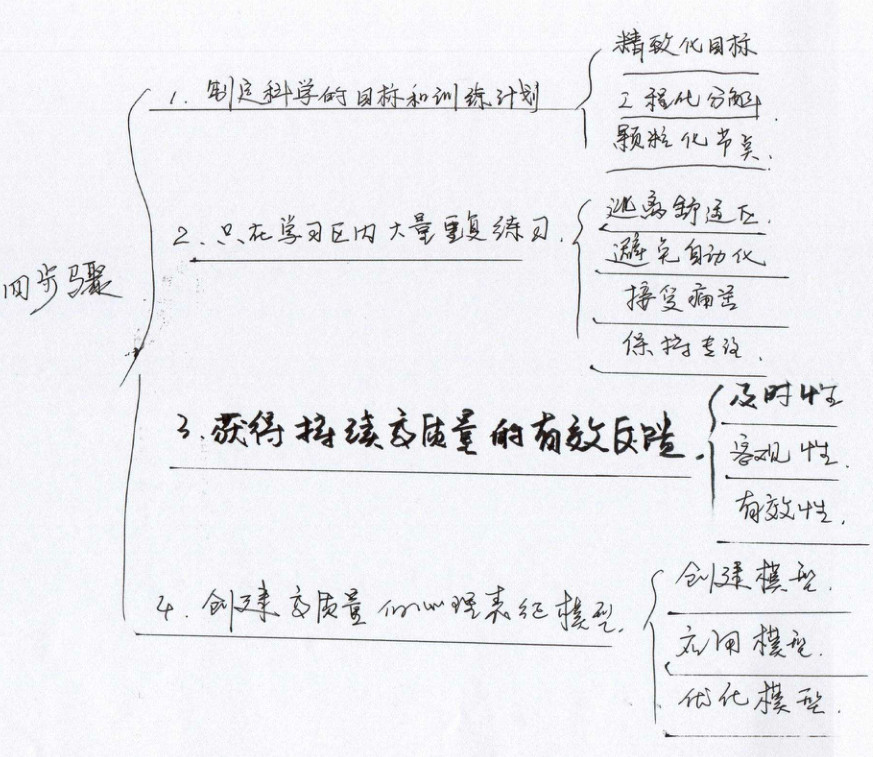 四步骤
1. 制定科学的目标和训练计划
精致化目标
工程化分解.
颗粒化节奏.
2. 只在学习区内大量重复练习.
逃离舒适区.
避免自动化
接受痛苦
保持专注.
3. 获得持续高质量的有效反馈.
及时性
客观性.
有效性.
4. 创建高质量的心理表征模型.
创建模型.
应用模型.
优化模型.